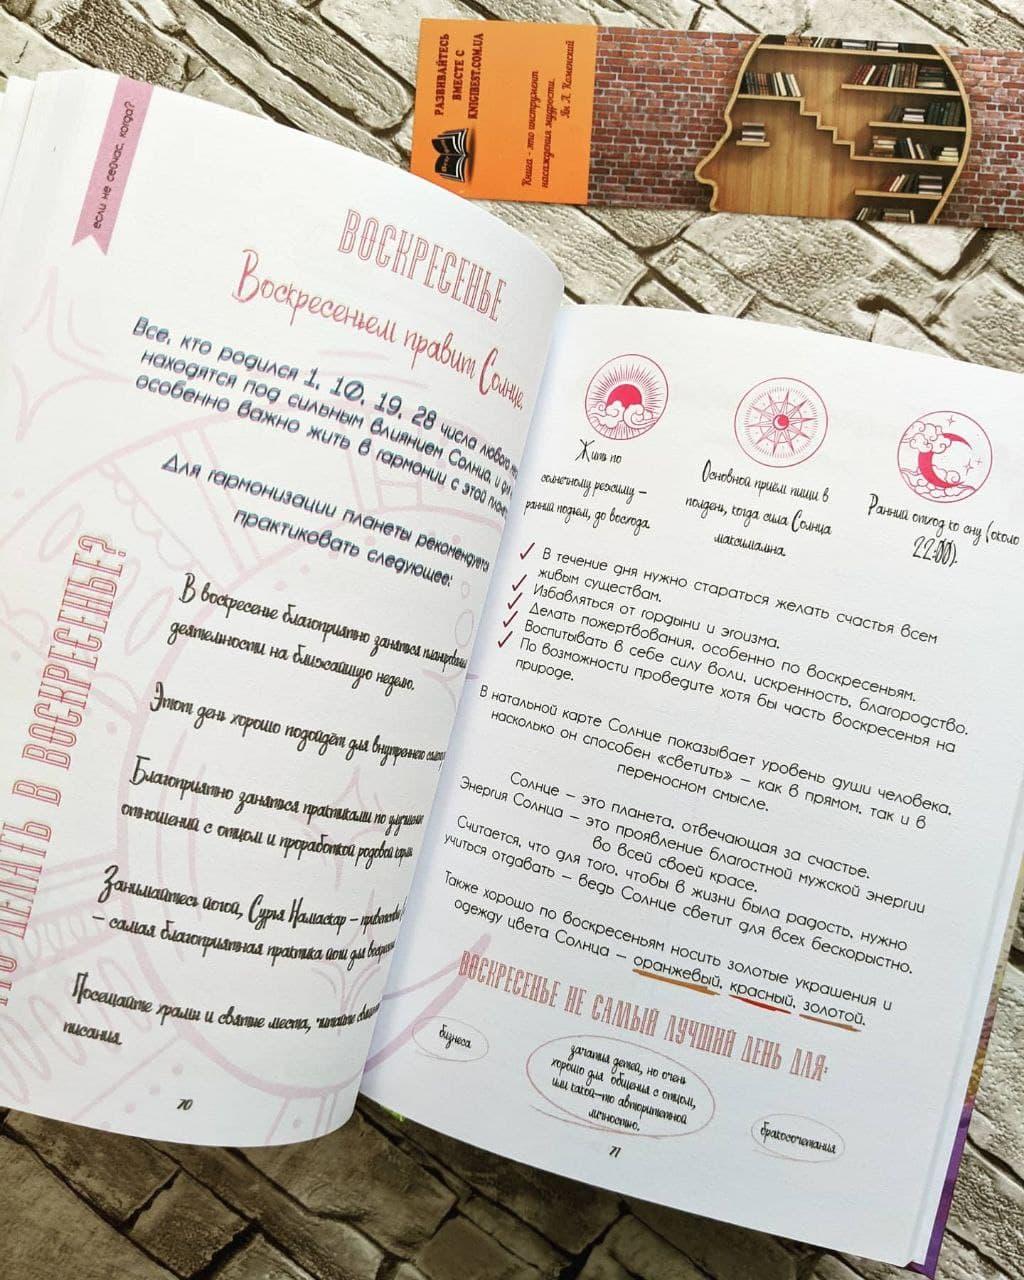 РАЗВИВАЙТЕСЬ
ВМЕСТЕ С
KNIGIBEST.COM.UA
Книга - это инструмент
насаждения мудрости.
Ян А. Коменский
если не сейчас, когда?
ВОСКРЕСЕНЬЕ
Воскресеньем правит Солнце.
Все, кто родился 1, 10, 19, 28 числа любого
находятся под сильным влиянием Солнца, и для
особенно важно жить в гармонии с этой
Для гармонизации планеты рекомендуется
практиковать следующее:
ДЕЛАТЬ В ВОСКРЕСЕНЬЕ?
В воскресенье благоприятно заняться
деятельности на ближайшую неделю.
Этот день хорошо подойдёт для внутреннего
Благоприятно заняться практиками по
отношений с отцом и проработкой родовой
Занимайтесь йогой, Сурья Намаскар –
– самая благоприятная практика йоги для
Посещайте храмы и святые места, читайте
писания.
70
Жить по
солнечному режиму –
ранний подъем, до восхода
Основной приём пищи в
полдень, когда сила Солнца
максимальна.
Ранний отход ко сну (около
22:00).
В течение дня нужно стараться желать счастья всем
живым существам.
Избавляться от гордыни и эгоизма.
Делать пожертвования, особенно по воскресеньям.
Воспитывать в себе силу воли, искренность, благородство.
По возможности проведите хотя бы часть воскресенья на
природе.
В натальной карте Солнце показывает уровень души человека,
насколько он способен «светить» – как в прямом, так и в
переносном смысле.
Солнце – это планета, отвечающая за счастье.
Энергия Солнца – это проявление благостной мужской энергии
во всей своей красе.
Считается, что для того, чтобы в жизни была радость, нужно
учиться отдавать – ведь Солнце светит для всех бескорыстно.
Также хорошо по воскресеньям носить золотые украшения и
одежду цвета Солнца – оранжевый, красный, золотой.
ВОСКРЕСЕНЬЕ НЕ САМЫЙ ЛУЧШИЙ ДЕНЬ ДЛЯ:
бизнеса
зачатия детей, но очень
хорошо для общения с отцом,
или какой-то авторитетной
личностью.
бракосочетания
71